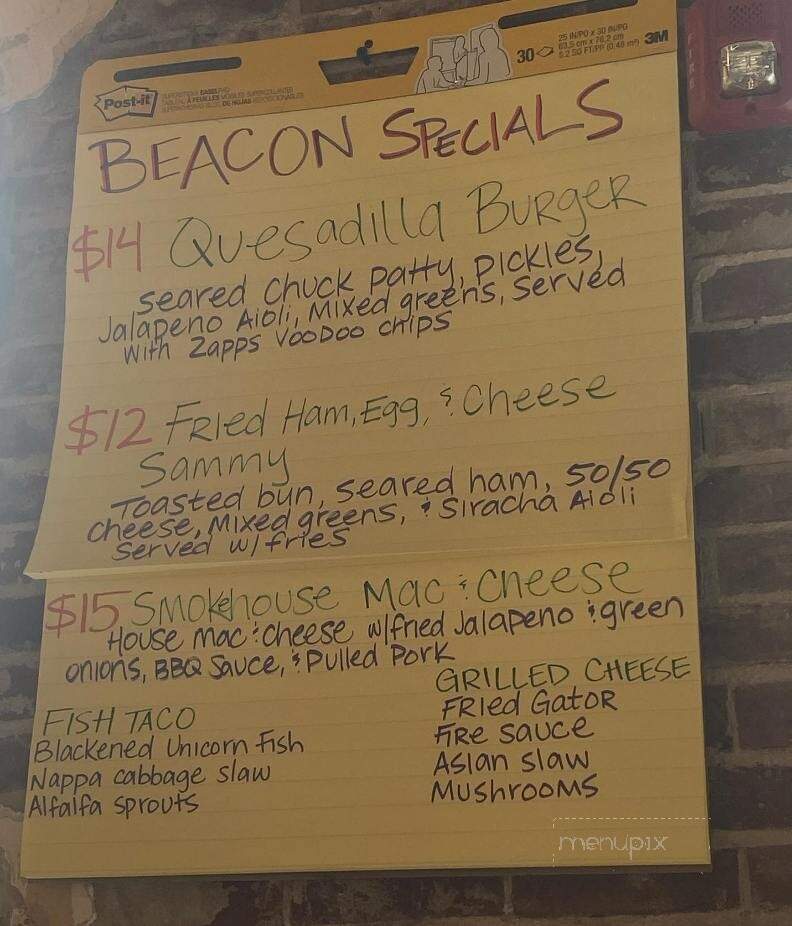 Post-it
30
25 IN/PO x 30 IN/PG
63,5 cm x 76,2 cm
5.2 SQ FT/PP (0,48 m²)
3M
BEACON SPECIALS
$14 Quesadilla Burger
Seared Chuck Patty, Pickles,
Jalapeno Aioli, Mixed greens, Served
With Zapps VooDoo chips
$12 Fried Ham, Egg, & Cheese
Sammy
Toasted bun, Seared ham, 50/50
cheese, Mixed greens, & Siracha Aioli
Served w/ fries
$15 Smokehouse Mac & Cheese
House Mac & cheese w/fried Jalapeno & green
onions, BBQ Sauce, & Pulled Pork
GRILLED CHEESE
Fried Gator
Fire sauce
Asian slaw
Mushrooms
FISH TACO
Blackened Unicorn Fish
Nappa cabbage slaw
Alfalfa sprouts
menupix